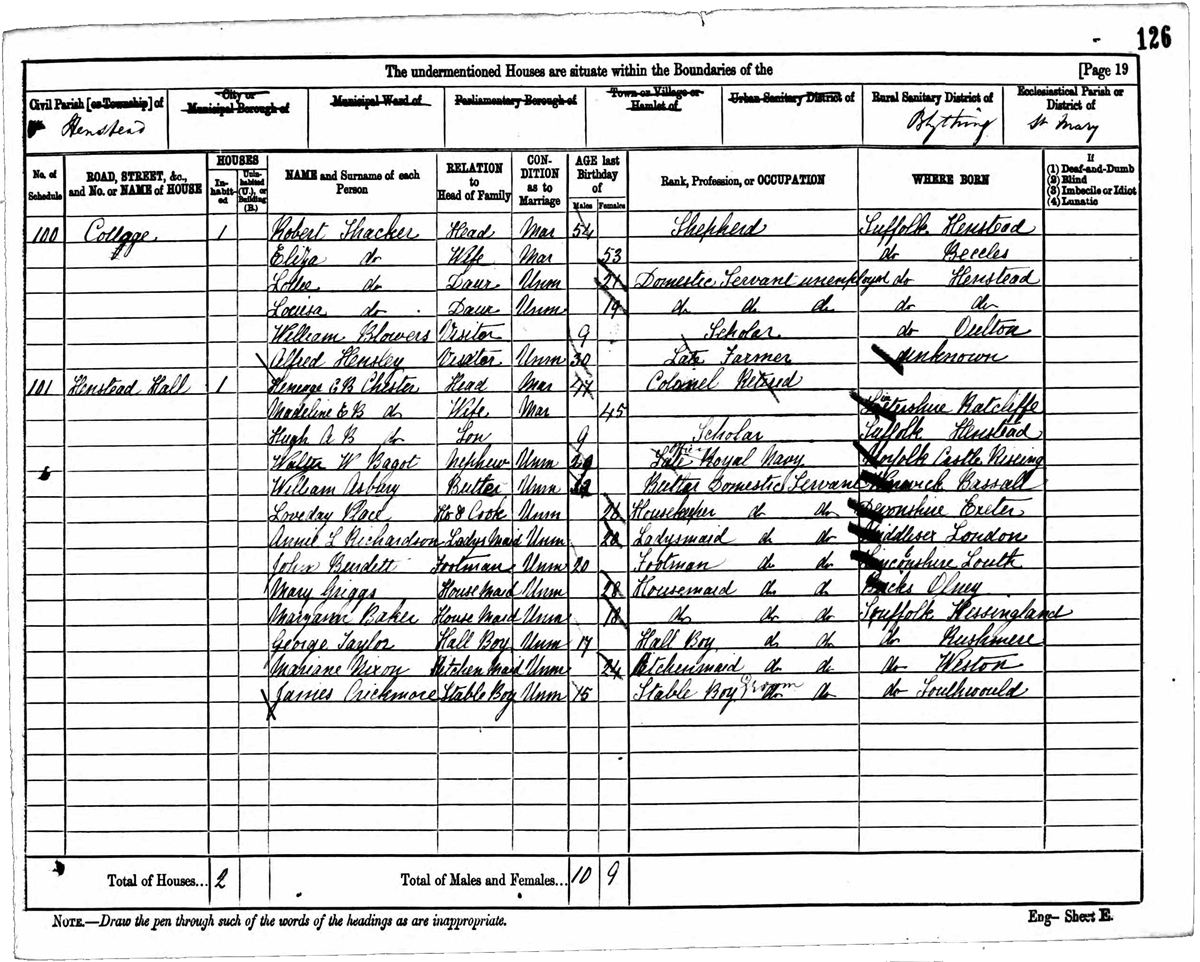 126
The undermentioned Houses are situate within the Boundaries of the [Page 19
Civil Parish [or Township] of City or Municipal Borough of Municipal Ward of Parliamentary Borough of Town or Village or Hamlet of Urban Sanitary District of Rural Sanitary District of Ecclesiastical Parish or District of
Henstead Blything St Mary
No. of Schedule ROAD, STREET, &c., and No. or NAME of HOUSE HOUSES Inhabited Uninhabited (U.), or Building (B.) NAME and Surname of each Person RELATION to Head of Family CONDITION as to Marriage AGE last Birthday of Males Females Rank, Profession, or OCCUPATION WHERE BORN If (1) Deaf-and-Dumb (2) Blind (3) Imbecile or Idiot (4) Lunatic
100 Cottage 1 Robert Thacker Head Mar 54 Shepherd Suffolk Henstead
Eliza do Wife Mar 53 do Beccles
Lottee do Daur Unm 21 Domestic Servant unemployed do Henstead
Louisa do Daur Unm 19 do do do do do
William Blowers Visitor 9 Scholar do Oulton
Alfred Hensley Visitor Unm 30 Late Farmer unknown
101 Henstead Hall 1 Heneage C B Chester Head Mar 47 Colonel Retired
Madeline E B do Wife Mar 45 Ratcliffe
Hugh A B do Son 9 Scholar Suffolk Henstead
Walter W Bagot Nephew Unm Royal Navy Norfolk Castle Riseing
William Asbury Butler Unm Butler Domestic Servant Warwick Bassall
Loveday Place Ho & Cook Unm Housekeeper do do Devonshire Exeter
Annie L Richardson Ladys Maid Unm 28 Ladysmaid do do Middlesex London
John Burdett Footman Unm 20 Footman do do Lincolnshire Louth
Mary Griggs House Maid Unm 28 Housemaid do do Bucks Olney
Maryann Baker House Maid Unm 18 do do do Suffolk Kessingland
George Taylor Hall Boy Unm 17 Hall Boy do do do Rushmere
Mariane Nixon Kitchen Maid Unm 24 Kitchenmaid do do do Weston
James Crickmore Stable Boy Unm 15 Stable Boy Groom do do do Southwould
Total of Houses... 2 Total of Males and Females... 10 9
NOTE.—Draw the pen through such of the words of the headings as are inappropriate. Eng— Sheet E.